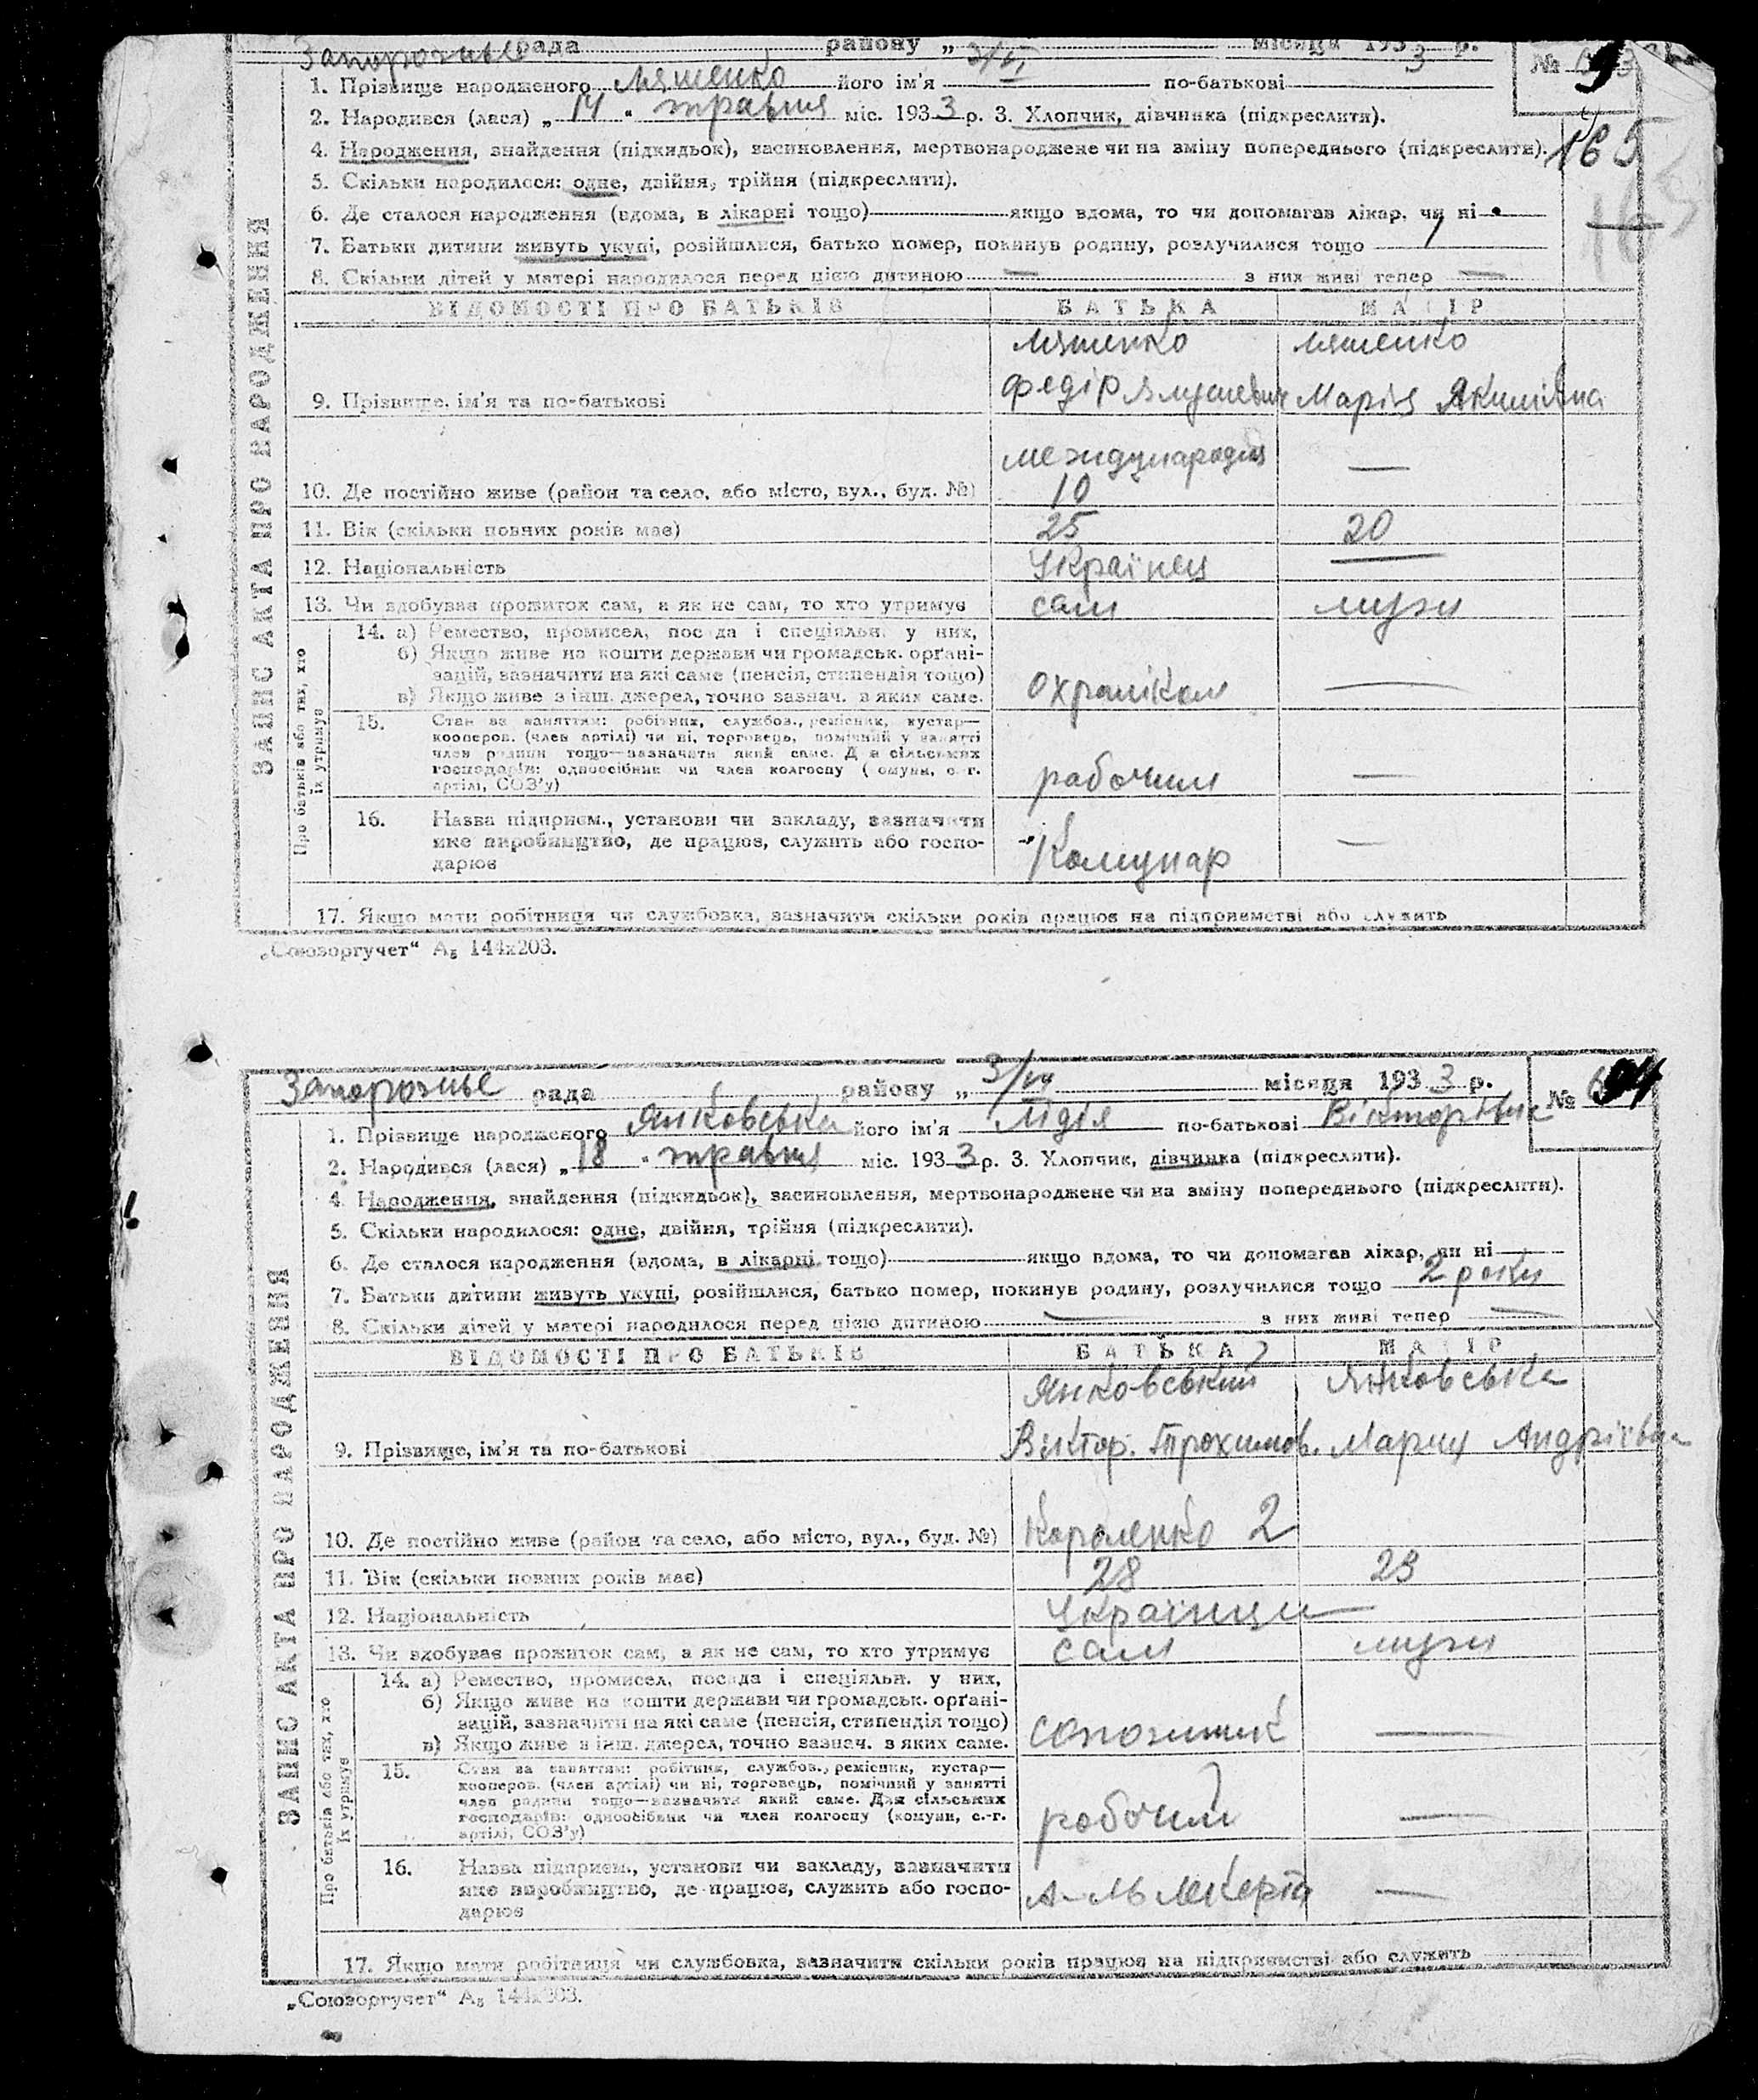 Запорожье рада району „ 3/VI місяця 1933 р.
№
1. Прізвище народженого Ляшенко його ім'я по-батькові
2. Народився (лася) „14" травня міс. 1933 р. 3. Хлопчик, дівчинка (підкреслити).
4. Народження, знайдення (підкидьок), засиновлення, мертвонароджене чи на зміну попереднього (підкреслити).
165
5. Скільки народилося: одне, двійня, трійня (підкреслити).
6. Де сталося народження (вдома, в лікарні тощо) якщо вдома, то чи допомагав лікар, чи ні
7. Батьки дитини живуть укупі, розійшлися, батько помер, покинув родину, розлучилися тощо 1
8. Скільки дітей у матері народилося перед цією дитиною — з них живі тепер —
ЗАПИС АКТА ПРО НАРОДЖЕННЯ
ВІДОМОСТІ ПРО БАТЬКІВ БАТЬКА МАТІР
Ляшенко Ляшенко
9. Прізвище, ім'я та по-батькові Федір Марія Якимівна
10. Де постійно живе (район та село, або місто, вул., буд. №) 10 —
11. Вік (скільки повних років має) 25 20
12. Національність Українец —
13. Чи здобуває прожиток сам, а як не сам, то хто утримує сам мужи
Про батьків або тих, хто їх утримує
14. а) Ремество, промисел, посада і спеціяльн. у них,
б) Якщо живе на кошти держави чи громадськ. орґані-
зацій, зазначити на які саме (пенсія, стипендія тощо)
в) Якщо живе з інш. джерел, точно зазнач. з яких саме. охраніком —
15. Стан за заняттям: робітник, службов., ремісник, кустар—
кооперов. (член артілі) чи ні, торговець, помічний у занятті
член родини тощо—зазначити який саме. Для сільських
господарів: одноосібник чи член колгоспу (комуни, с.-г.
артілі, СОЗ'у) рабочим —
16. Назва підприєм., установи чи закладу, зазначити
яке виробництво, де працює, служить або госпо-
дарює Комунар —
17. Якщо мати робітниця чи службовка, зазначити скільки років працює на підприємстві або служить
„Союзоргучет“ А₅ 144x203.
Запорожье рада району „ 3/VI місяця 1933 р.
№
1. Прізвище народженого Янковська його ім'я Лідія по-батькові Вікторівна
2. Народився (лася) „18" травня міс. 1933 р. 3. Хлопчик, дівчинка (підкреслити).
4. Народження, знайдення (підкидьок), засиновлення, мертвонароджене чи на зміну попереднього (підкреслити).
5. Скільки народилося: одне, двійня, трійня (підкреслити).
6. Де сталося народження (вдома, в лікарні тощо) якщо вдома, то чи допомагав лікар, чи ні
7. Батьки дитини живуть укупі, розійшлися, батько помер, покинув родину, розлучилися тощо 2 роки
8. Скільки дітей у матері народилося перед цією дитиною — з них живі тепер —
ЗАПИС АКТА ПРО НАРОДЖЕННЯ
ВІДОМОСТІ ПРО БАТЬКІВ БАТЬКА МАТІР
Янковський Янковська
9. Прізвище, ім'я та по-батькові Віктор. Трохимов. Мария Андріївна
10. Де постійно живе (район та село, або місто, вул., буд. №) Короленко 2
11. Вік (скільки повних років має) 28 23
12. Національність Українци
13. Чи здобуває прожиток сам, а як не сам, то хто утримує сам мужи
Про батьків або тих, хто їх утримує
14. а) Ремество, промисел, посада і спеціяльн. у них,
б) Якщо живе на кошти держави чи громадськ. орґані-
зацій, зазначити на які саме (пенсія, стипендія тощо)
в) Якщо живе з інш. джерел, точно зазнач. з яких саме. сопожник —
15. Стан за заняттям: робітник, службов., ремісник, кустар—
кооперов. (член артілі) чи ні, торговець, помічний у занятті
член родини тощо—зазначити який саме. Для сільських
господарів: одноосібник чи член колгоспу (комуни, с.-г.
артілі, СОЗ'у) робочий —
16. Назва підприєм., установи чи закладу, зазначити
яке виробництво, де працює, служить або госпо-
дарює —
17. Якщо мати робітниця чи службовка, зазначити скільки років працює на підприємстві або служить
„Союзоргучет“ А₅ 144x203.